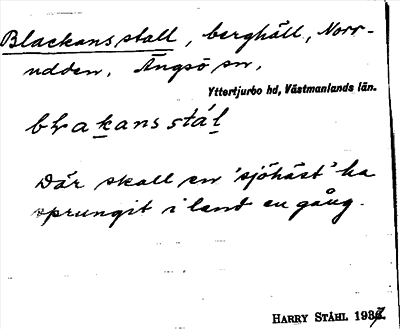 Blackans stall, berghäll, Norr-
udden, Ängsö sn,
Yttertjurbo hd, Västmanlands län.
blakans stál
Där skall en 'sjöhäst' ha
sprungit i land en gång.
HARRY STÅHL 1937.